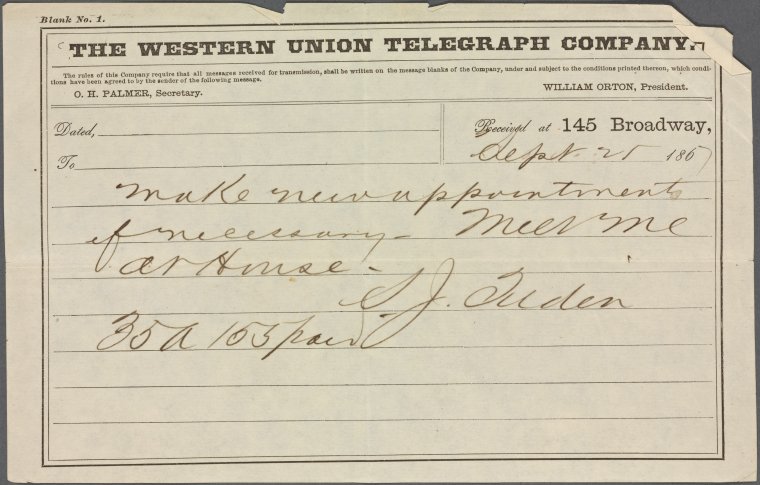 Blank No. 1.
THE WESTERN UNION TELEGRAPH COMPANY.
The rules of this Company require that all messages received for transmission, shall be written on the message blanks of the Company, under and subject to the conditions printed thereon, which condi-
tions have been agreed to by the sender of the following message.
O. H. PALMER, Secretary. WILLIAM ORTON, President.
Dated, Received at 145 Broadway,
To Sept. 25 1867
make new appointments
if necessary – Meet me
at House –
S. J. Tilden
35 A 155 paid